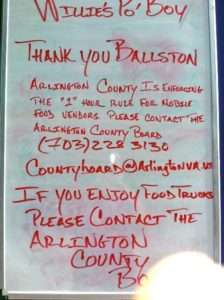 WILLIE'S PO' BOY
THANK YOU BALLSTON
ARLINGTON COUNTY IS ENFORCING
THE "1" HOUR RULE FOR MOBILE
FOOD VENDORS. PLEASE CONTACT THE
ARLINGTON COUNTY BOARD
(703) 228 3130
Countyboard@ArlingtonVA.us
IF YOU ENJOY FOOD TRUCKS
PLEASE CONTACT THE
ARLINGTON
COUNTY
BO